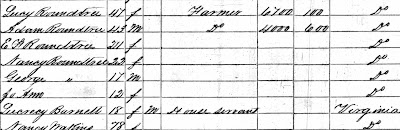 Lucy Roundtree 47 f Farmer 6700 100 Do
Adam Roundtree 43 M Do 4000 600 Do
E P Roundtree 211 f Do
Nancy Roundtree 22 f Do
George " 17 M Do
Jo Ann 12 f Do
Burnett 18 f M House servant Virginia
Nancy Watkins 78 f Do